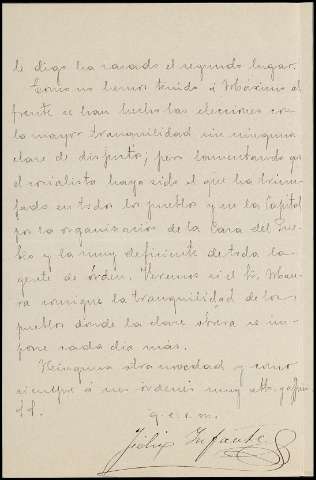 le digo ha sacado el segundo lugar.
Como no hemos tenido á Máximo al
frente se han hecho las elecciones con
la mayor tranquilidad sin ninguna
clase de disgusto, pero lamentando que
el socialista haya sido el que ha triun-
fado en todos los pueblos y en la Capital
por la organización de la Casa del Pue-
blo y la muy deficiente de toda la
gente de órden. Veremos si el Sr. Mau-
ra consigue la tranquilidad de los
pueblos donde la clase obrera se im-
pone cada dia más.
Ninguna otra novedad y como
siempre á sus órdenes muy atto. y affmo.
S. S.
q. e. s. m.
Félix Infante